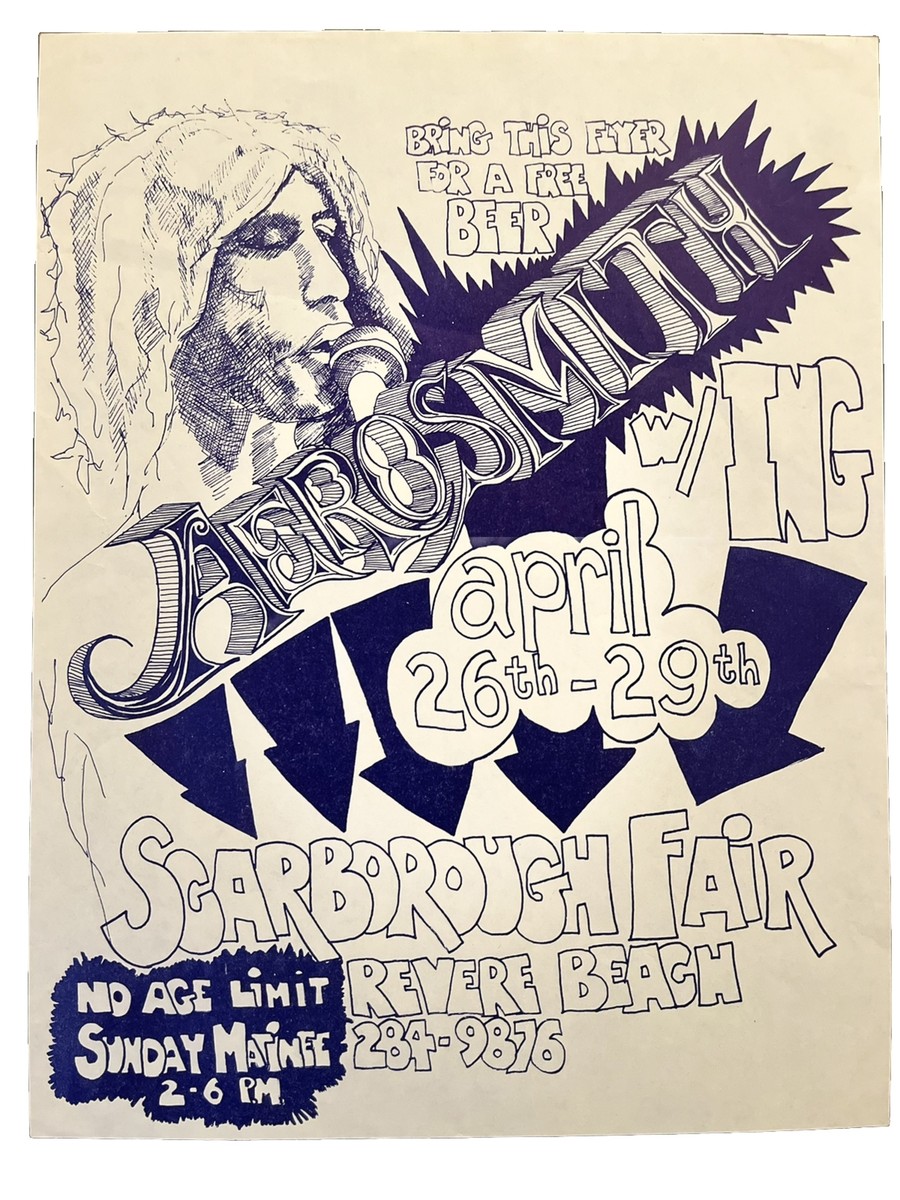 BRING THIS FLYER
FOR A FREE
BEER
AEROSMITH
w/ ING
april
26th - 29th
SCARBOROUGH FAiR
REVERE BEACH
284-9876
NO AGE LiMiT
SUNDAY MATiNEE
2-6 P.M.